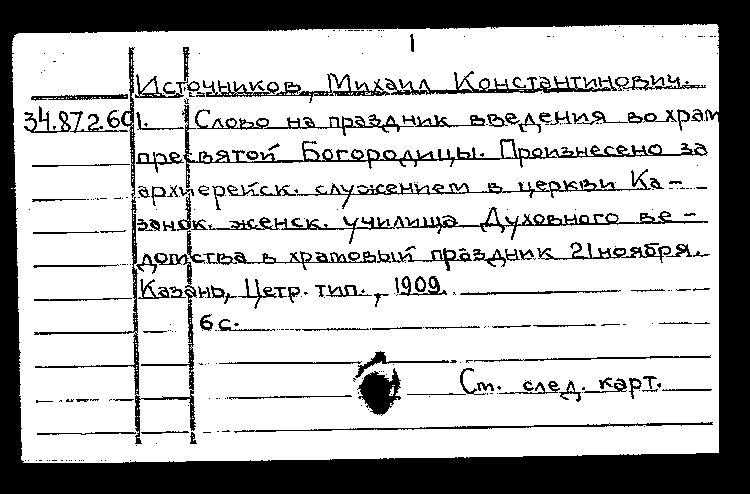 1
Источников, Михаил Константинович.
34.87.2.601. Слово на праздник введения во храм
пресвятой Богородицы. Произнесено за
архиерейск. служением в церкви Ка-
занск. женск. училища Духовного ве-
домства в храмовый праздник 21 ноября.
Казань, Цетр. тип., 1909.
6 с.
Ст. след. карт.